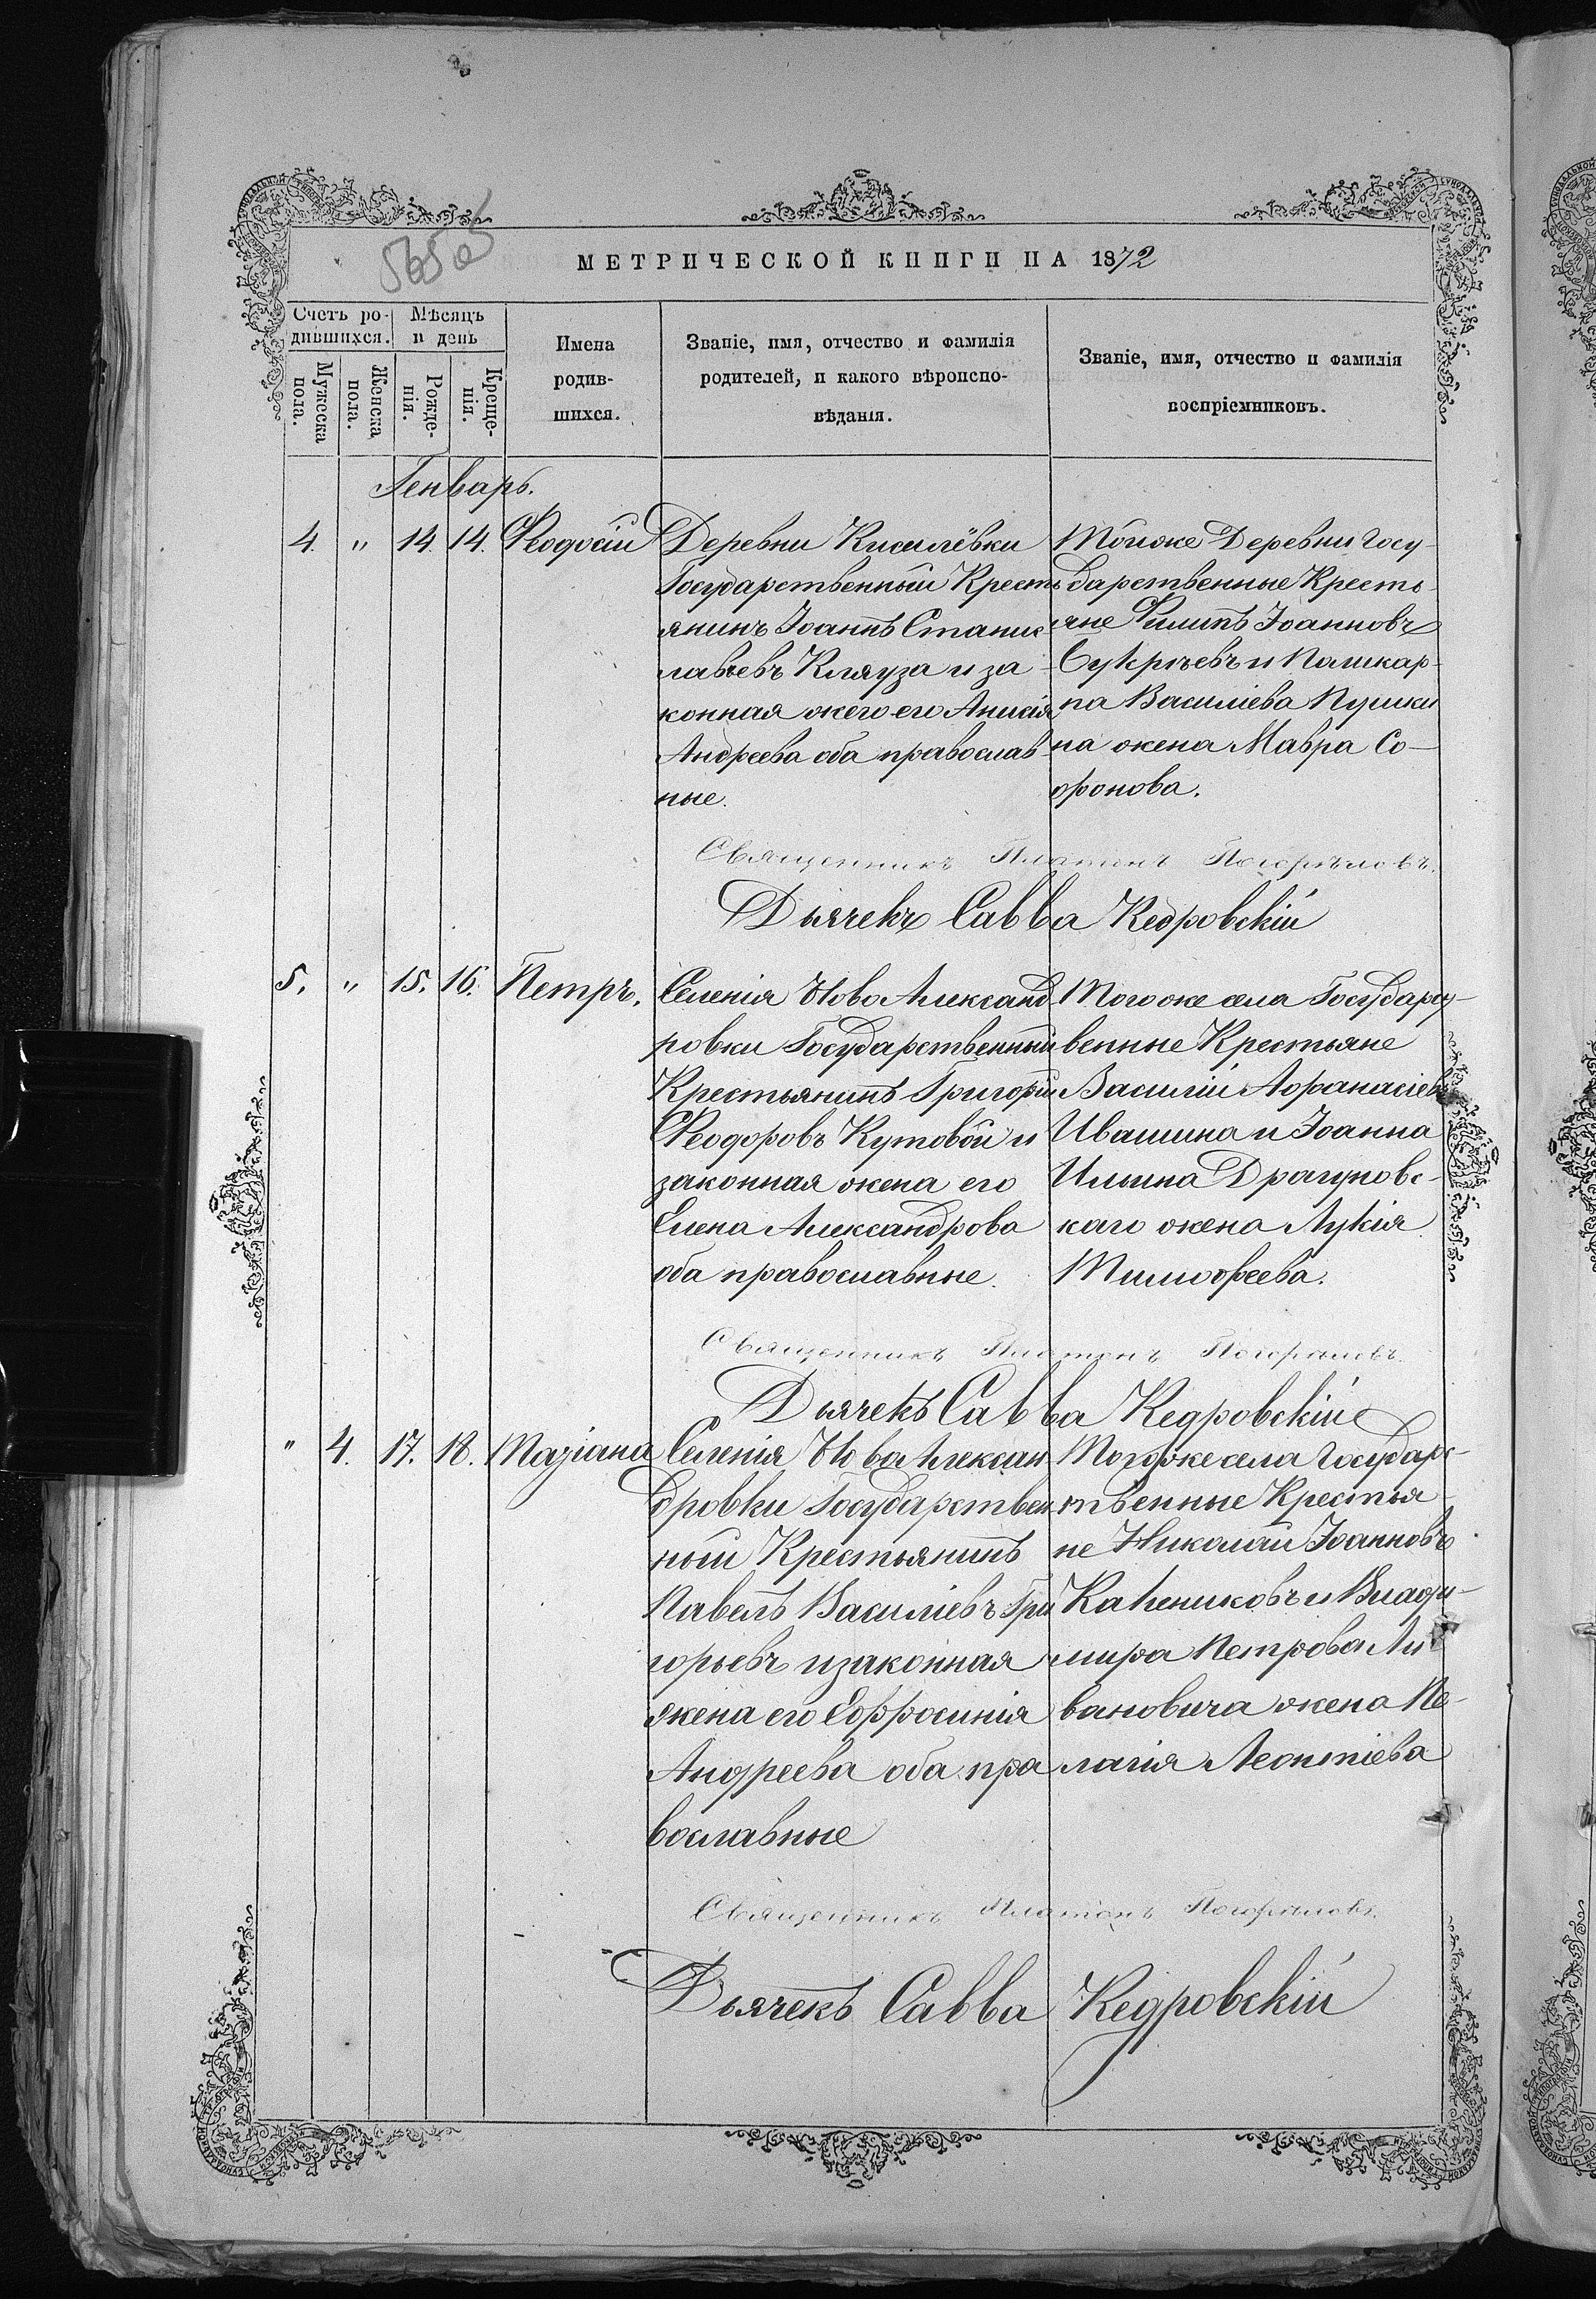 5650
МЕТРИЧЕСКОЙ КНИГИ НА 1872
Счетъ ро-
дившихся.
Мѣсяцъ
и день
Мужеска
пола.
Женска
пола.
Рожде-
нія.
Креще-
нія.
Имена
родив-
шихся.
Званіе, имя, отчество и фамилія
родителей, и какого вѣроиспо-
вѣданія.
Званіе, имя, отчество и фамилія
воспріемниковъ.
Генварь.
4. " 14. 14. Ѳеодосій
Деревни Киселёвки
Государственный Кресть
янинъ Іоаннъ Станис
лавьевъ Кляуза и за-
конная жего его Анисія
Андреева оба православ
ные.
Тойже Деревни Госу-
дарственные Кресть-
яне Филипъ Іоанновъ
Сукрѣевъ и Поликар-
па Василіева Пушки
на жена Мавра Со-
фонова.
Священникъ Платонъ Погорѣловъ.
Дьячекъ Савва Кедровскій
5. " 15. 16. Петръ.
Селенія Ново Александ
ровки Государственный
Крестьянинъ Григорій
Ѳеодоровъ Кутовой и
законная жена его
Елена Александрова
оба православные.
Того же села Государст-
венные Крестьяне
Василій Афанасіевъ
Ивашина и Іоанна
Ильина Драгуновс-
каго жена Лукія
Тимофеева.
Священникъ Платонъ Погорѣловъ.
Дьячекъ Савва Кедровскій
" 4. 17. 18. Татіана
Селенія Нова Алексан
дровки Государствен
ный Крестьянинъ
Павелъ Василіевъ Гри
горьевъ изаконная
жена его Ефросинія
Андреева оба пра
вославные
Того же села Государс-
твенные Крестья-
не Николай Іоанновъ
и Влади-
мира Петрова Ли
вановича жена Пе-
лагія Леонтіева
Священникъ Платонъ Погорѣловъ.
Дьячекъ Савва Кедровскій